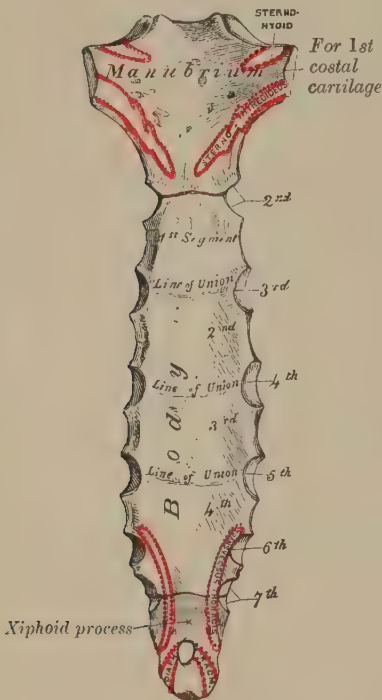 STERNO-
HYOID
For 1st
costal
cartilage
Manubrium
STERNO-THYREOIDEUS
2nd
1st Segment
Line of Union
3rd
2nd
Body
Line of Union
4th
3rd
Line of Union
5th
4th
6th
7th
Xiphoid process